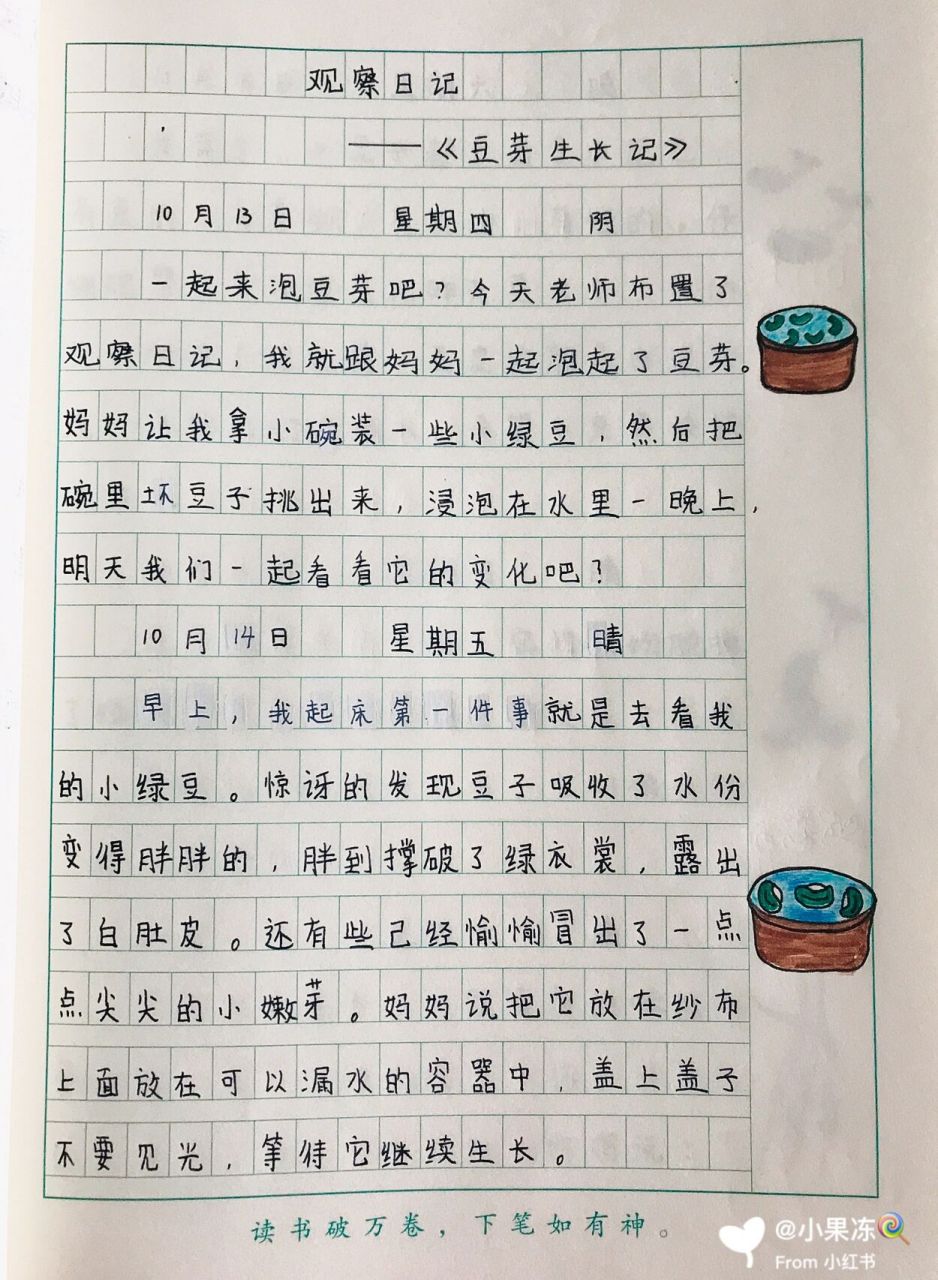 观察日记
——《豆芽生长记》
10月13日 星期四 阴
一起来泡豆芽吧?今天老师布置了
观察日记,我就跟妈妈一起泡起了豆芽。
妈妈让我拿小碗装一些小绿豆,然后把
碗里坏豆子挑出来,浸泡在水里一晚上,
明天我们一起看看它的变化吧?
10月14日 星期五 晴
早上,我起床第一件事就是去看我
的小绿豆。惊讶的发现豆子吸收了水份
变得胖胖的,胖到撑破了绿衣裳,露出
了白肚皮。还有些已经愉愉冒出了一点
点尖尖的小嫩芽。妈妈说把它放在纱布
上面放在可以漏水的容器中,盖上盖子
不要见光,等待它继续生长。
读书破万卷,下笔如有神。
@小果冻🍭
From 小红书